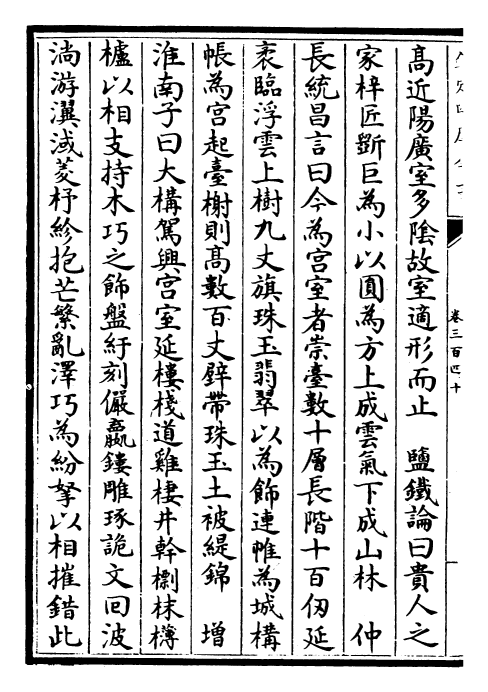 高近陽廣室多陰故室適形而止　鹽鐵論曰貴人之
家梓匠斲巨為小以圓為方上成雲氣下成山林　仲
長統昌言曰今為宮室者崇臺數十層長階十百仞延
袤臨浮雲上樹九丈旗珠玉翡翠以為飾連帷為城構
帳為宮起臺榭則高數百丈壁帶珠玉土被緹錦　增
淮南子曰大構駕興宮室延樓棧道雞棲井幹檦枺欂
櫨以相支持木巧之飾盤紆刻儼嬴鏤雕琢詭文回波
淌游瀷淢菱杼紾抱芒繁亂澤巧為紛拏以相摧錯此
卷三百四十